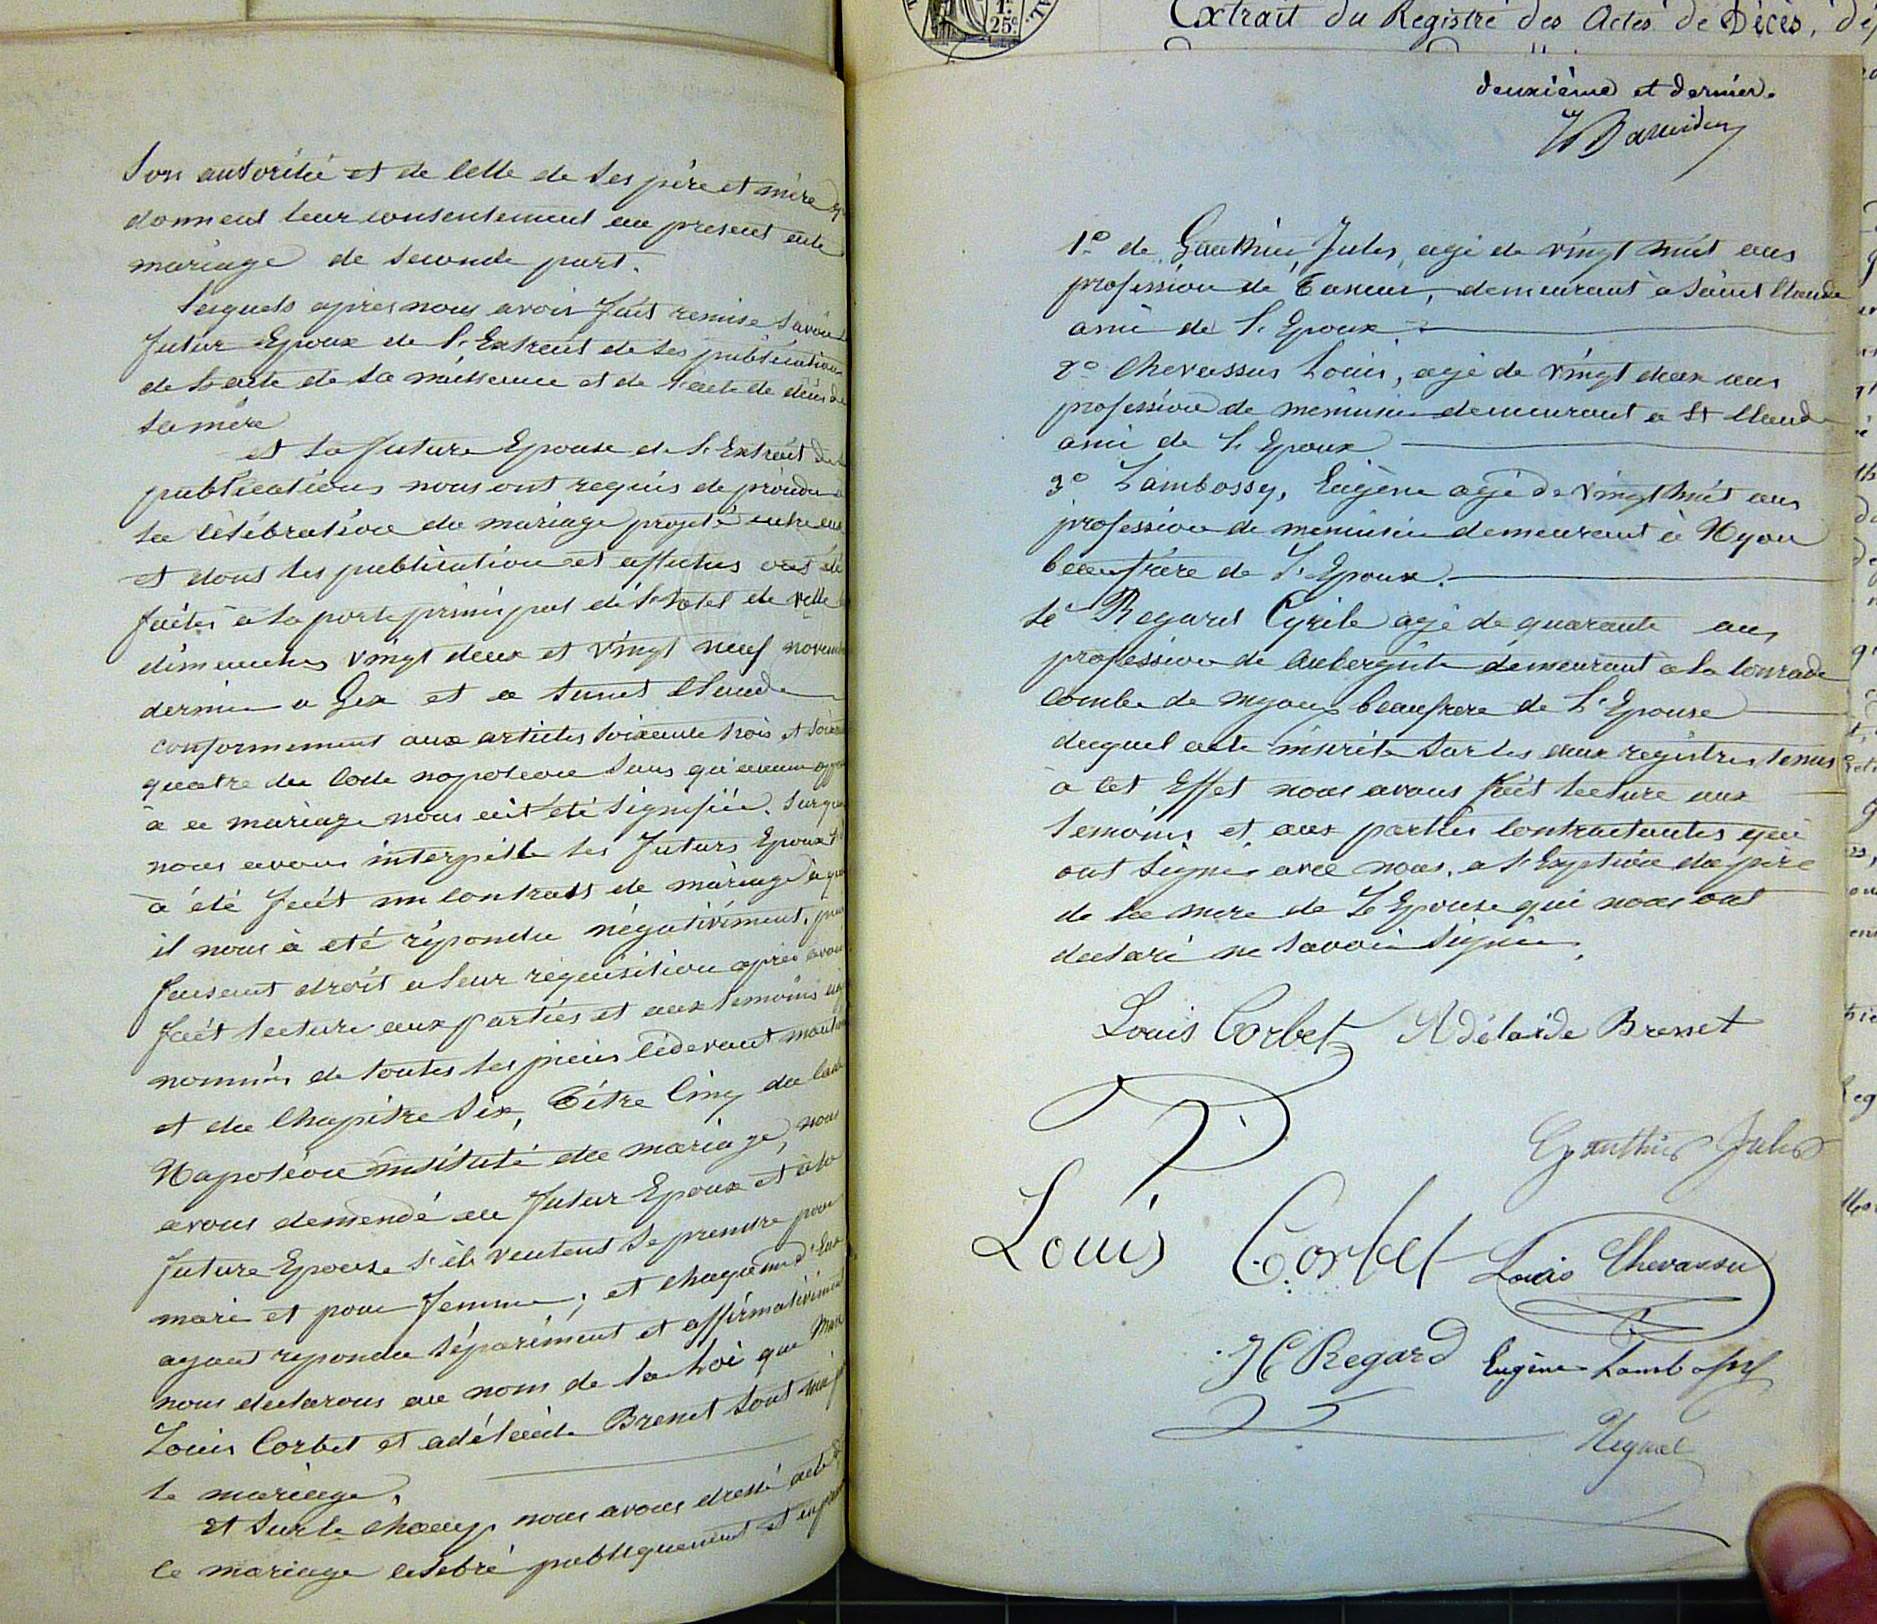 Son autorité et de celle de ses père et mère
donnent leur consentement au present acte
mariage de seconde part.
Lesquels après nous avoir fait remise savoir
futur Epoux de l'Extrait de ses publications
de l'acte de sa naissance et de l'acte de décès de
sa mère
et la future Epouse de l'Extrait de
publications nous ont requis de procéder
la célébration du mariage projeté entre eux
et dont les publication et affiches ont été
faites à la porte principal de l'hotel de ville
dimanches vingt deux et vingt neuf novembre
dernier a Gex et a saint Claude
conformement aux articles soixante trois et soixante
quatre du Code napoleon sans qu'aucune
à ce mariage nous eut été signifiée. Sur quoi
nous avons interpellé les futurs Epoux
à été fait un contrat de mariage à quoi
il nous à eté répondu négativement,
faisant droit a leur réquisition après avoir
fait lecture aux parties et aux temoins
nommés de toutes les pièces cidevant
et du Chapitre six, Titre Cinq du Code
Napoléon intitulé du mariage, nous
avons demendé au futur Epoux et à la
future Epouse s'ils veulent se prendre pour
mari et pour femme; et chaqu'un d'Eux
ayant repondu séparément et affirmativement
nous declarons au nom de la Loi que
Louis Corbet et adélaide Brenet sont uni par
le mariage.
Et sur le champ nous avons dressé acte
le mariage celebré publiquement et en
Extrait du Registre des Actes de Décès,
1.F 25c
deuxième et dernier.
1.º de Gauthier Jules, agé de vingt huit ans
profession de Taneur, demeurant à Saint Claude
ami de l'Epoux
2º Chevassus Louis, agé de vingt deux ans
profession de menuisier demeurant a St Claude
ami de l'Epoux
3º Lambossy, Eugène agé de vingt huit ans
profession de menuisier demeurant à Nyon
beaufrère de l'Epoux.
Regard Cyrile agé de quarante ans
profession de Aubergiste demeurant a la
combe de beaufrere de L'Epouse
duquel acte inscrite sur les deux registres tenus
à cet Effet nous avons fait lecture aux
temoins et aux parties Contractantes qui
ont signé avec nous, a l'Exption du père
de la mere de L'Epouse qui nous ont
declaré ne savoir signer.
Louis Corbet Adélaïde Brenet
Gauthier Jules
Louis Corbet Louis Chevassu
Regard Eugène Lambossy